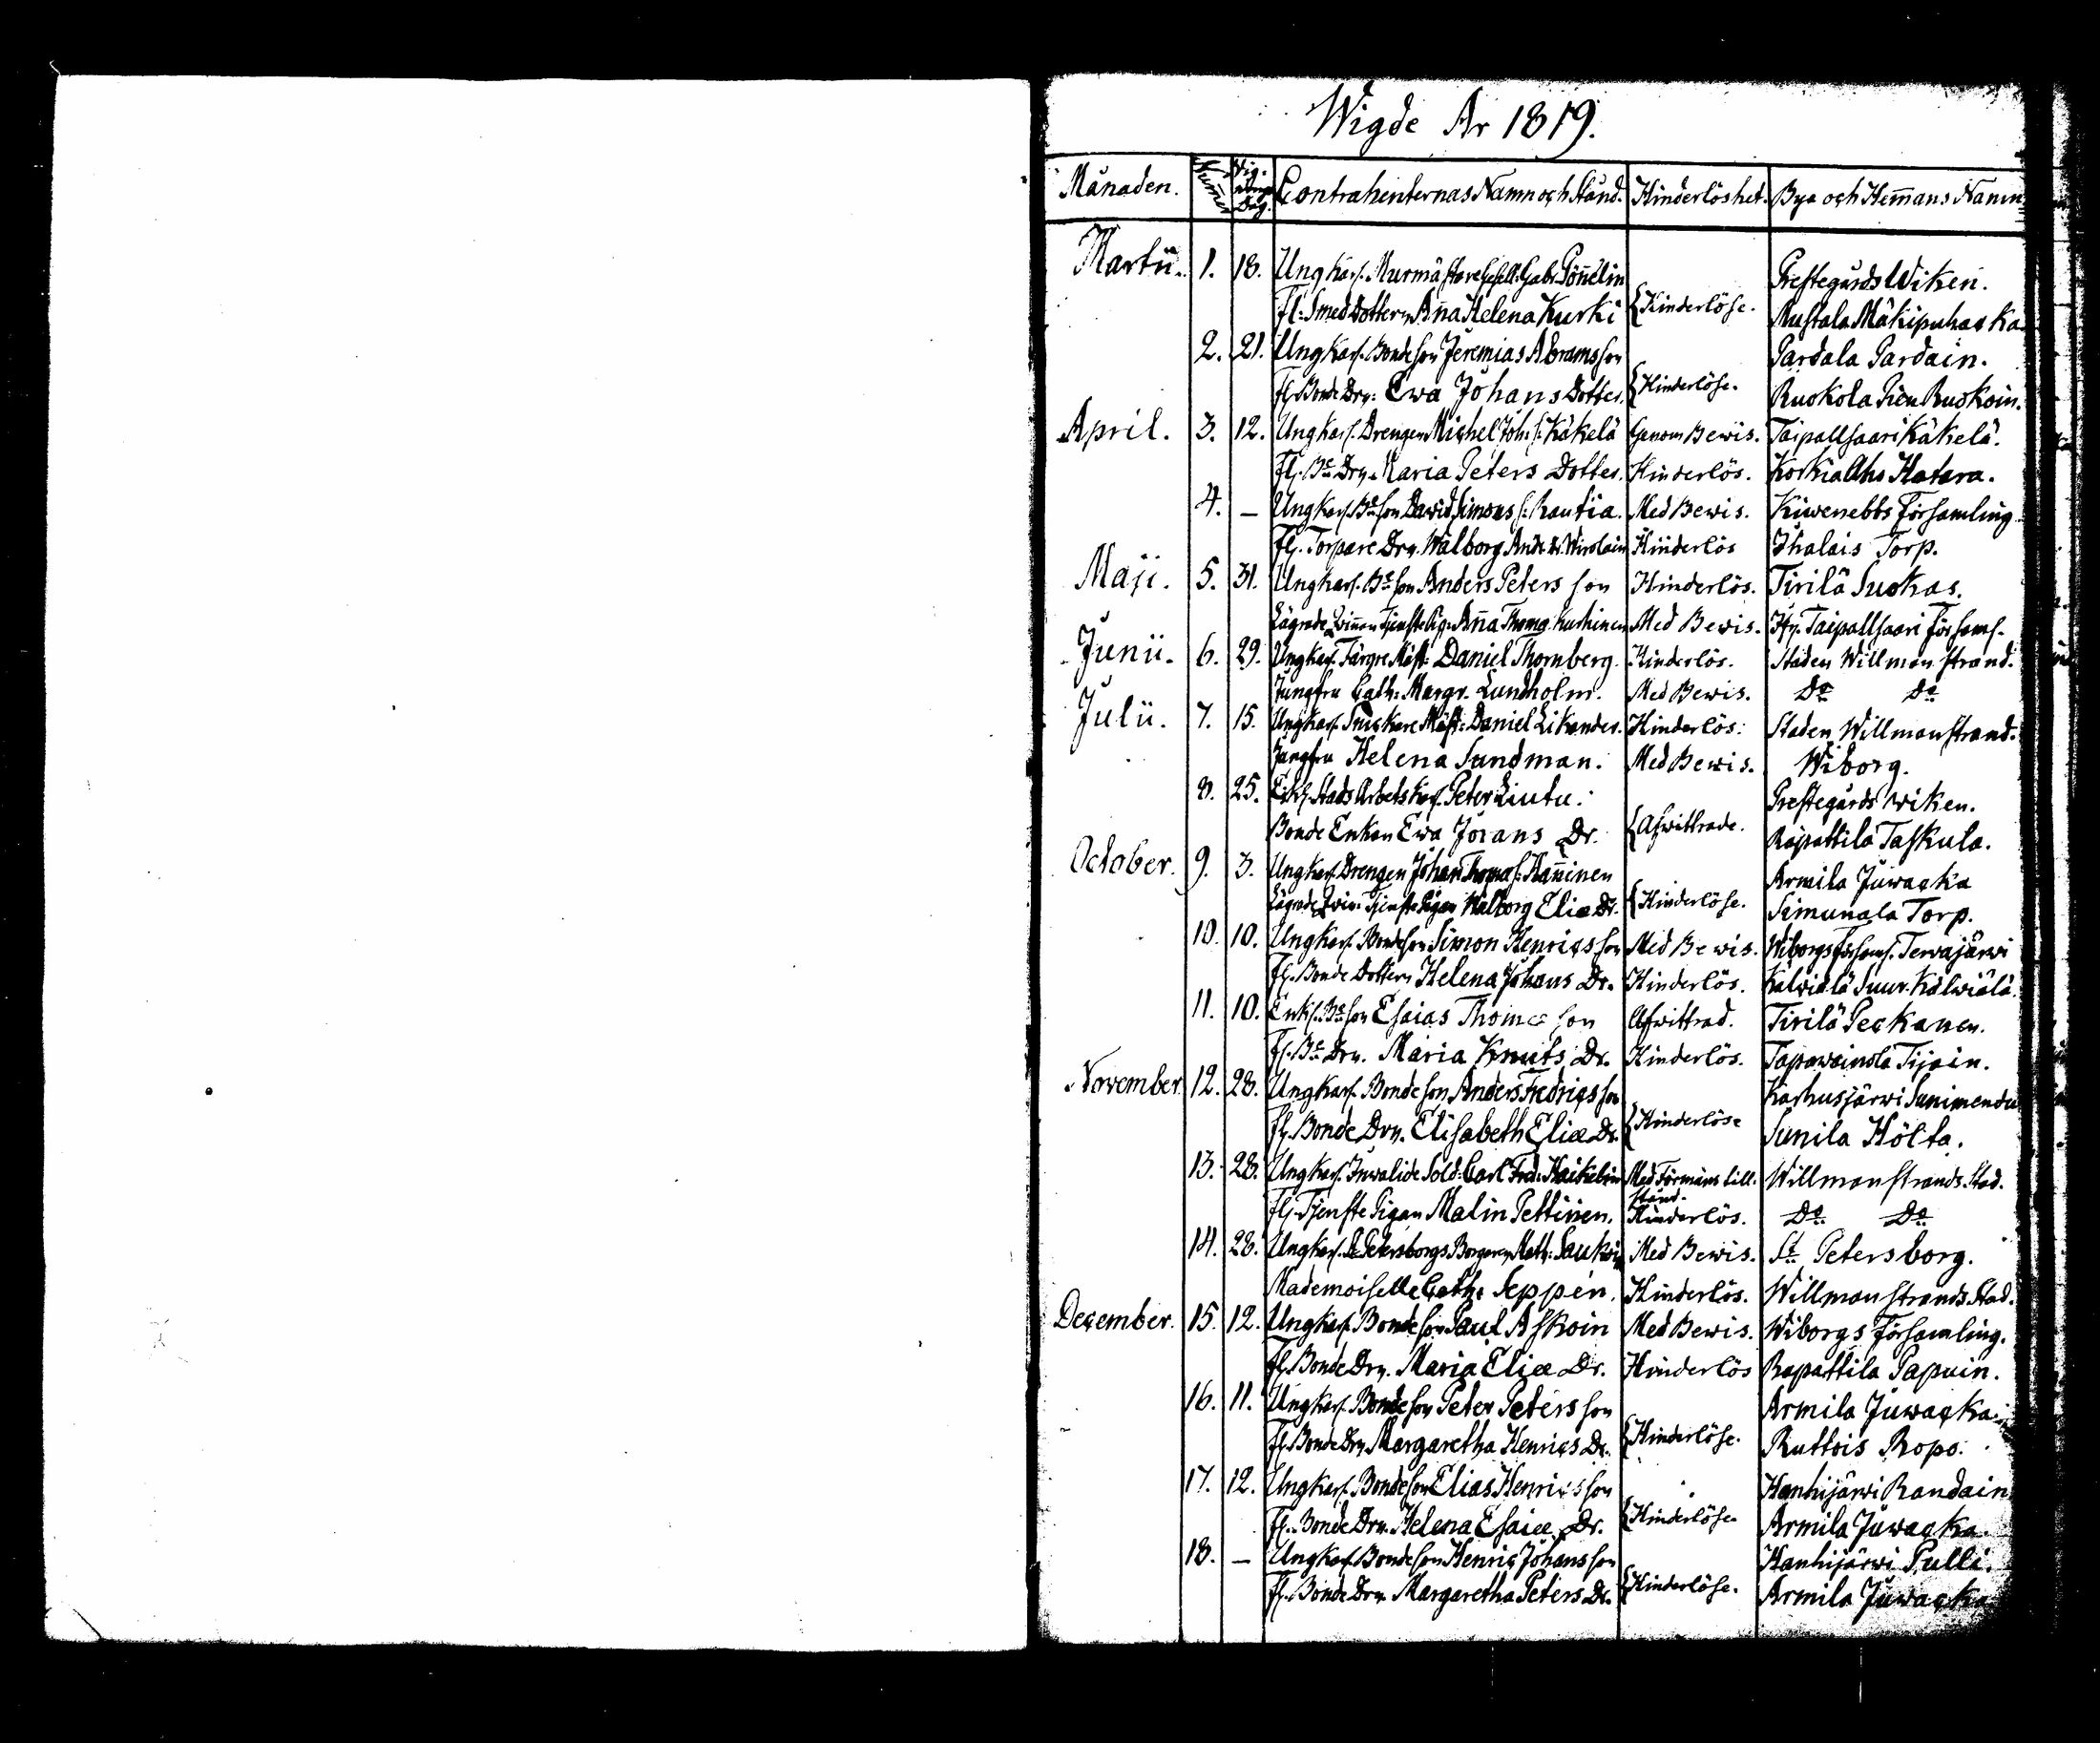 Wigde År 1819.
Månaden. Nummer Vignings Dag. Contrahenternas Namn och Stånd. Hinderlöshet. Bya och Hem̄ans Namn
Martii. 1. 18. Ungkarl. Murmästare Gesell. Gabr. Pöṅelin Prestegårds Wiken.
Fl: Smed Dottern Ana Helena Kurki Hinderlöse. Mustala Mäkipuhacka
2. 21. Ungkarl. Bondeson Jeremias Abramsson Pardala Pardain.
Fl. Bonde Drn: Ewa Johans Dotter. Hinderlöse. Ruokola Pien Ruokoin.
April. 3. 12. Ungkarl. Drengen Michel Joh: s: Käkelä Genom Bewis. Taipallsaari Käkelä.
Fl. Be Drn. Maria Peters Dotter. Hinderlös. Korkia Aho Hatara.
4. — Ungkarl. Be son David Simons s: Rautia. Med Bewis. Kiwenebbs Församling.
Fl. Torpare Drn. Walborg Andr. Dr. Wirolain Hinderlös Ihalais Torp.
Maji. 5. 31. Ungkarl. Be son Anders Peters son Hinderlös. Tirilä Suokas.
Lägrade Qvinnan Tjenste Pig. Ana Thoma Kurhinen Med Bewis. Ifr. Taipallsaari Församl.
Junii. 6. 29. Ungkarl. Färgre Mäst: Daniel Thornberg. Hinderlös. Staden Willmanstrand.
Jungfru Cath: Margr. Lundholm. Med Bewis. Do Do
Julii. 7. 15. Ungkarl. Snickare Mäst: Daniel Likander. Hinderlös: Staden Willmanstrand.
Jungfru Helena Sundman. Med Bewis. Wiborg.
8. 25. Enkl. Stads Arbets Karl Peter Liutu. Prestegårds wiken.
Bonde Enkan Ewa Jörans Dr. Afwittrade. Rapattila Taskula.
October. 9. 3. Ungkarl. Drengen Johan Thomas s: Haninen Armila Juwacka
Lägrade Qvin: Tjenste Pigan Walborg Eliæ Dr. Hinderlöse. Simunala Torp.
10. 10. Ungkarl. Bondeson Simon Henricsson Med Bewis. Wiborgs Församl. Terwajärwi
Fl. Bonde Dottern Helena Johans Dr. Hinderlös. Kälwiälä Suur-Kälwiälä.
11. 10. Enkl. Be son Esaias Thomæ son Afwittrad. Tirilä Peckanen.
Fl. Be Drn. Maria Knuts Dr. Hinderlös. Tapawainola Tijain.
November. 12. 28. Ungkarl. Bonde son Anders Fredricsson Karhusjärwi Sunimendu
Fl. Bonde Drn. Elisabeth Eliæ Dr. Hinderlöse Sunila Hölta.
13. 28. Ungkarl. Invalide Sold: Carl Fred: Haikelin Med Förmans till- Willmanstrands. Stad.
stånd.
Fl. Tjenste Pigan Malin Pettinen. Hinderlös. Do Do
14. 28. Ungkarl. St. Petersborgs Borgaren Math: Med Bewis. St Petersborg.
Mademoiselle Cath: Seppén. Hinderlös. Willmanstrands Stad.
December. 15. 12. Ungkarl. Bonde son Paul Askoin Med Bewis. Wiborgs Församling.
Fl. Bonde Drn. Maria Eliæ Dr. Hinderlös Rapattila Papuin.
16. 11. Ungkarl. Bonde son Peter Peters son Armila Juwacka.
Fl. Bonde Drn. Margaretha Henrics Dr. Hinderlöse. Ruttois Ropo.
17. 12. Ungkarl. Bonde son Elias Henricsson Hanhijärwi Randain
Fl. Bonde Drn. Helena Esaiæ Dr. Hinderlöse Armila Juwacka.
18. — Ungkarl. Bonde son Henric Johansson Hanhijärwi Pulli.
Fl. Bonde Drn. Margaretha Peters Dr. Hinderlöse. Armila Juwacka